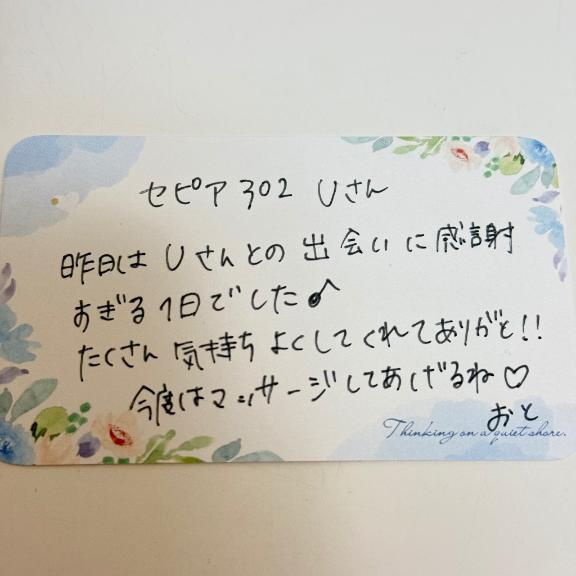 セピア302 Uさん
昨日はUさんとの出会いに感謝
すぎる1日でした♪
たくさん気持ちよくしてくれてありがと!!
今度はマッサージしてあげるね♡
おと
Thinking on a quiet shore.